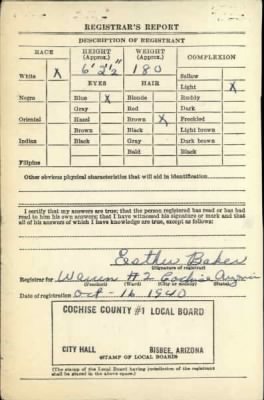 REGISTRAR'S REPORT
DESCRIPTION OF REGISTRANT
RACE HEIGHT (Approx.) WEIGHT (Approx.) COMPLEXION
White X 6' 2½" 180 Sallow
EYES HAIR Light X
Negro Blue X Blonde Ruddy
Gray Red Dark
Oriental Hazel Brown X Freckled
Brown Black Light brown
Indian Black Gray Dark brown
Bald Black
Filipino
Other obvious physical characteristics that will aid in identification
I certify that my answers are true; that the person registered has read or has had
read to him his own answers; that I have witnessed his signature or mark and that
all of his answers of which I have knowledge are true, except as follows:
Esther Baker
Signature of registrar
Registrar for Warren #2 Cochise Arizona
(Precinct) (Ward) (City or county) (State)
Date of registration Oct - 16 - 1940
COCHISE COUNTY #1 LOCAL BOARD
CITY HALL BISBEE, ARIZONA
STAMP OF LOCAL BOARD
(The stamp of the Local Board having jurisdiction of the registrant
shall be placed in the above space.)